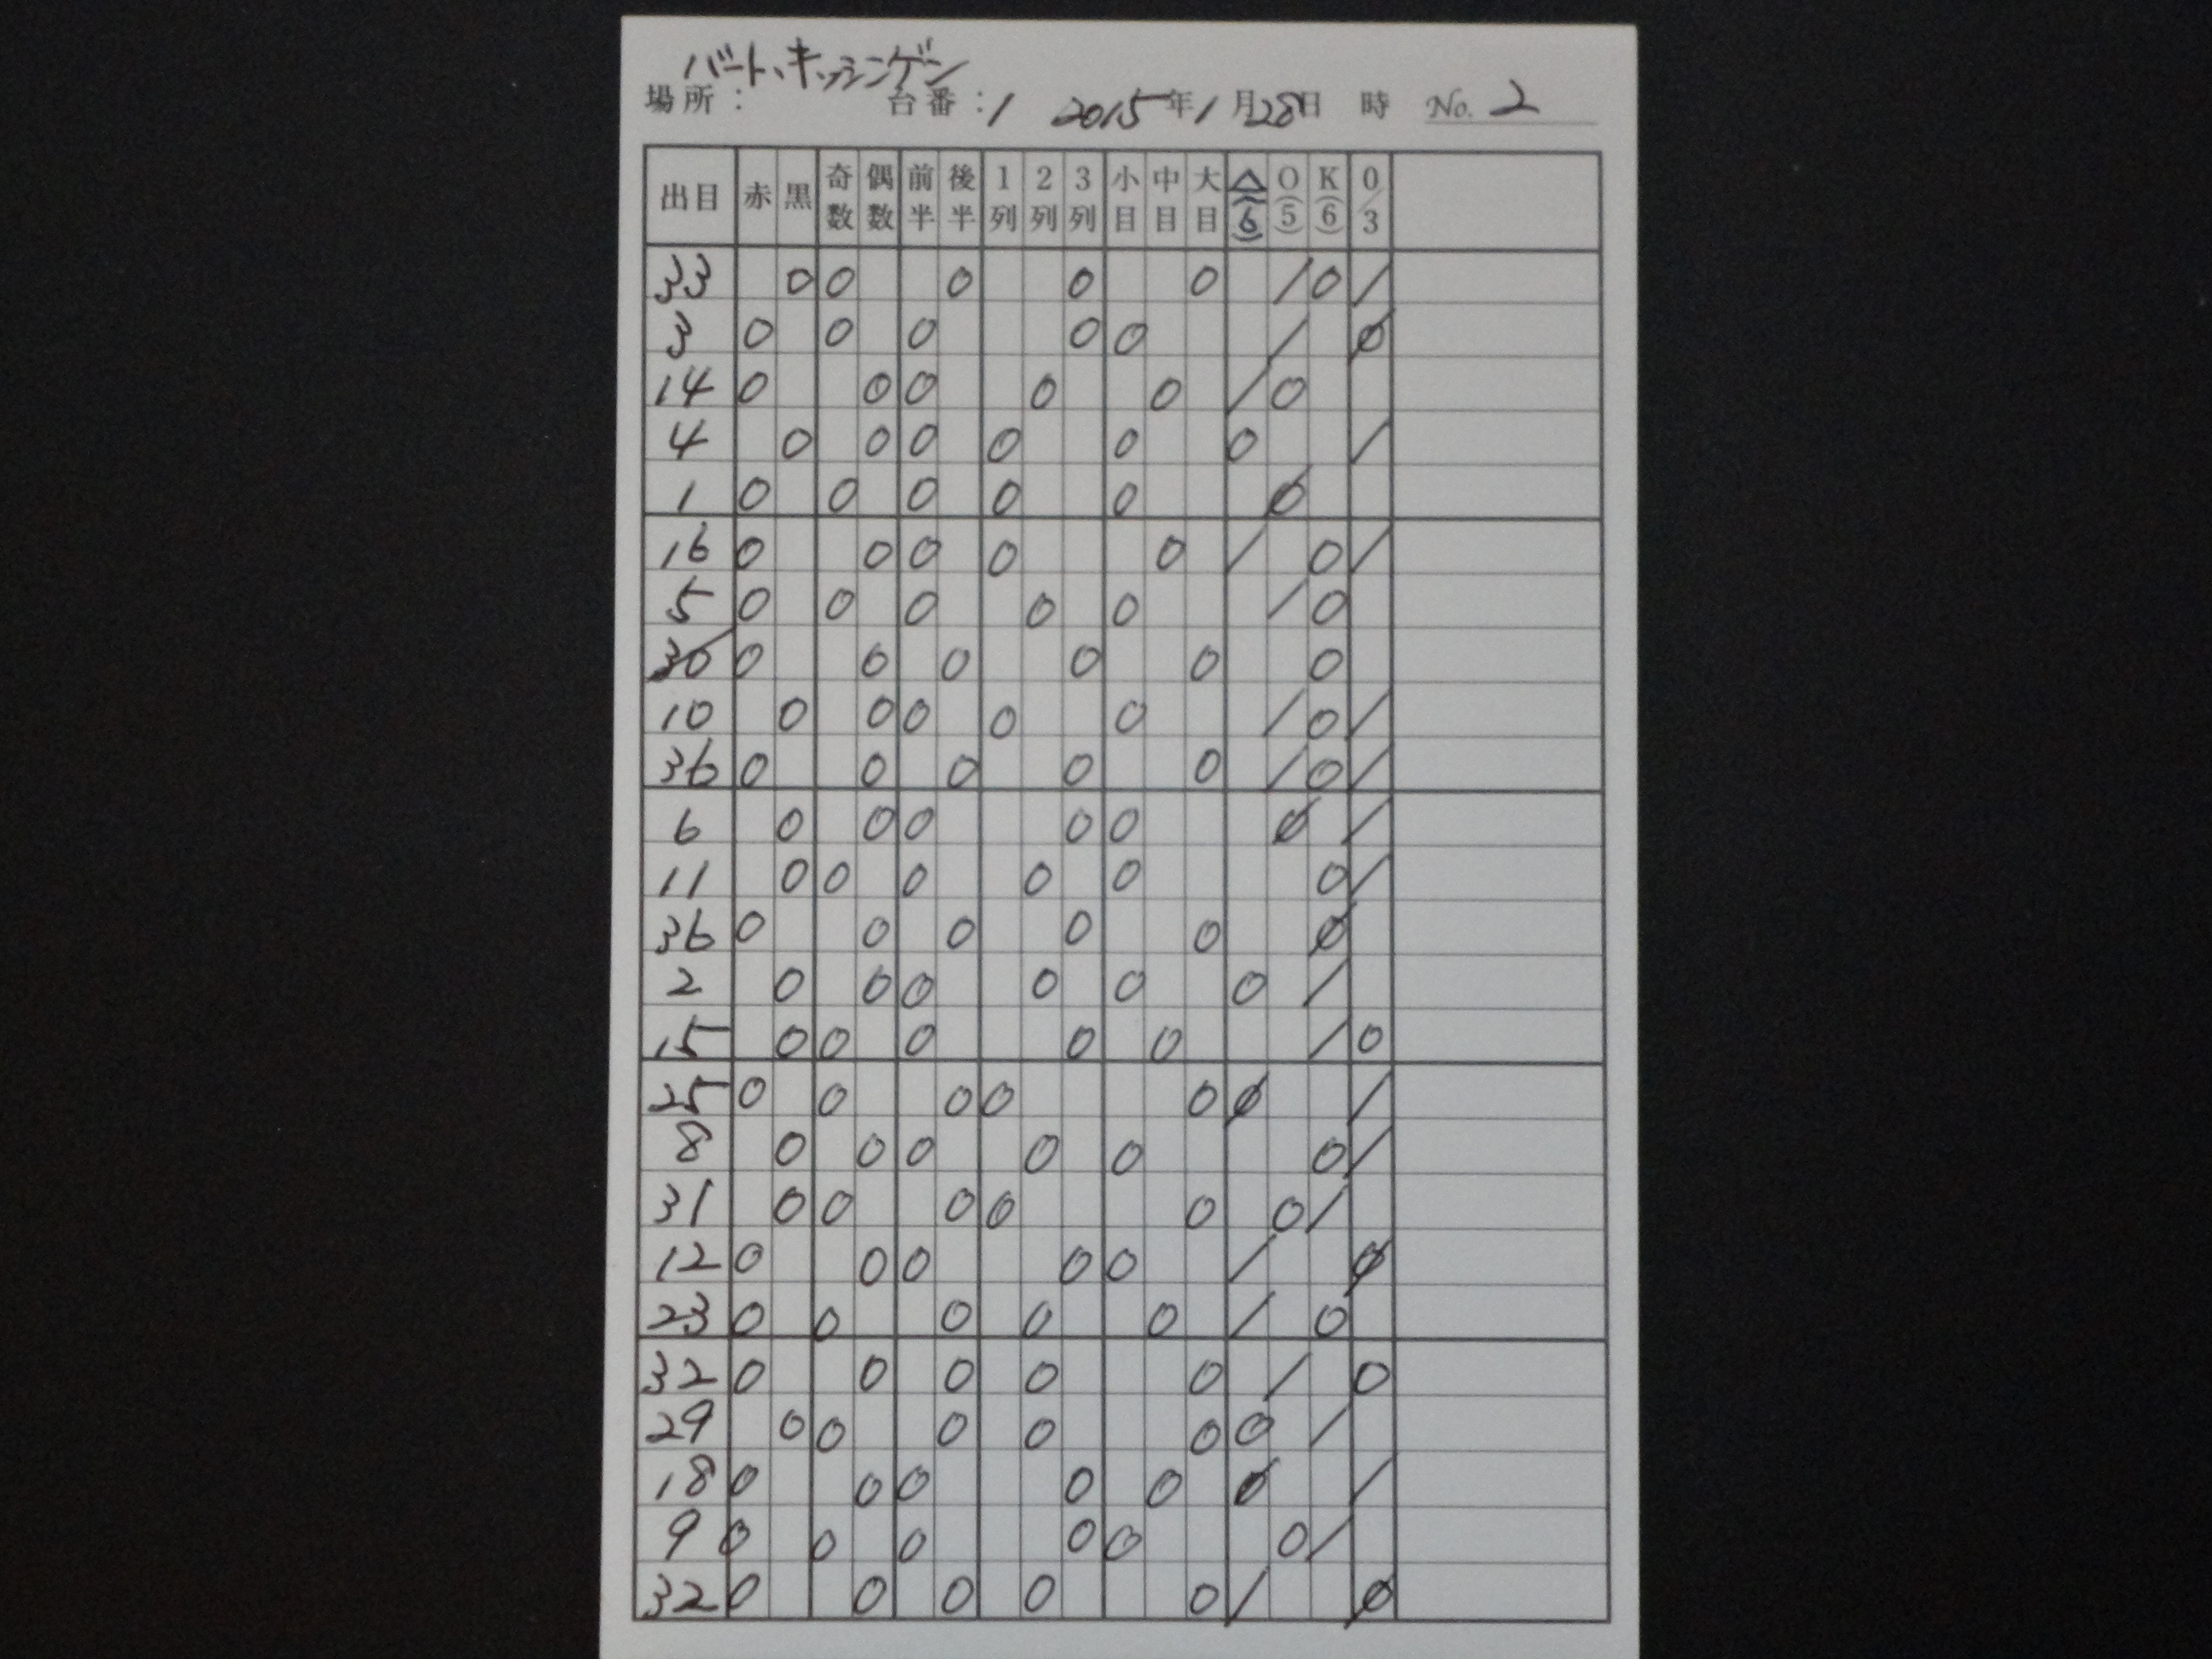 バート、キッシンゲン
場所： 台番：1 2015年1月28日 時 No. 2
出目 赤 黒 奇数 偶数 前半 後半 1列 2列 3列 小目 中目 大目 △(6) O(5) K(6) 0/3
33 0 0 0 0 0 / 0 /
3 0 0 0 0 0 / Ø
14 0 0 0 0 0 / 0
4 0 0 0 0 0 0 /
1 0 0 0 0 0 Ø
16 0 0 0 0 0 / 0 /
5 0 0 0 0 0 / 0
30 0 0 0 0 0 0
10 0 0 0 0 0 / 0 /
36 0 0 0 0 0 / 0 /
6 0 0 0 0 0 Ø /
11 0 0 0 0 0 0 /
36 0 0 0 0 0 Ø
2 0 0 0 0 0 0 /
15 0 0 0 0 0 / 0
25 0 0 0 0 0 Ø /
8 0 0 0 0 0 0 /
31 0 0 0 0 0 0 /
12 0 0 0 0 0 / Ø
23 0 0 0 0 0 / 0
32 0 0 0 0 0 / 0
29 0 0 0 0 0 0 /
18 0 0 0 0 0 Ø /
9 0 0 0 0 0 0 /
32 0 0 0 0 0 / Ø